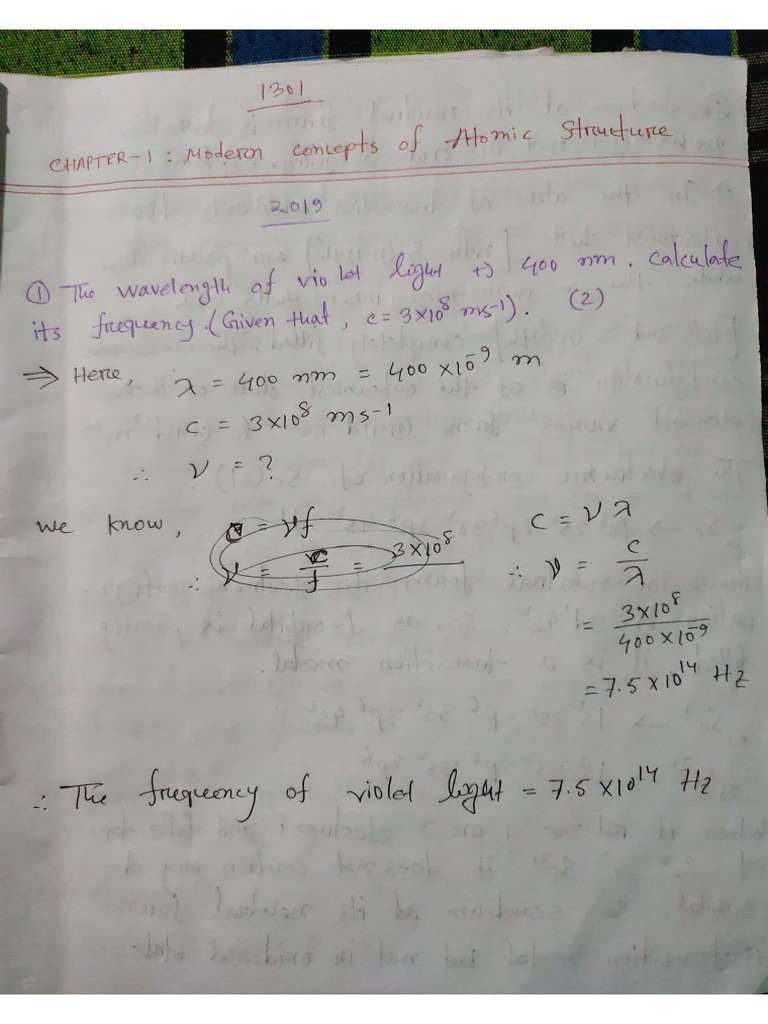 1301
CHAPTER-1: Modern concepts of Atomic Structure
2019
① The wavelength of violet light is 400 nm. calculate
its frequency. (Given that, c = 3×10⁸ ms-1). (2)
⇒ Here, λ = 400 nm = 400 ×10⁻⁹ m
c = 3×10⁸ ms-1
∴ ν = ?
we know, = νf
c = ν λ
∴ ν = c/f = 3×10⁸
∴ ν = c/λ
= 3×10⁸/400×10⁻⁹
= 7.5×10¹⁴ Hz
∴ The frequency of violet light = 7.5×10¹⁴ Hz